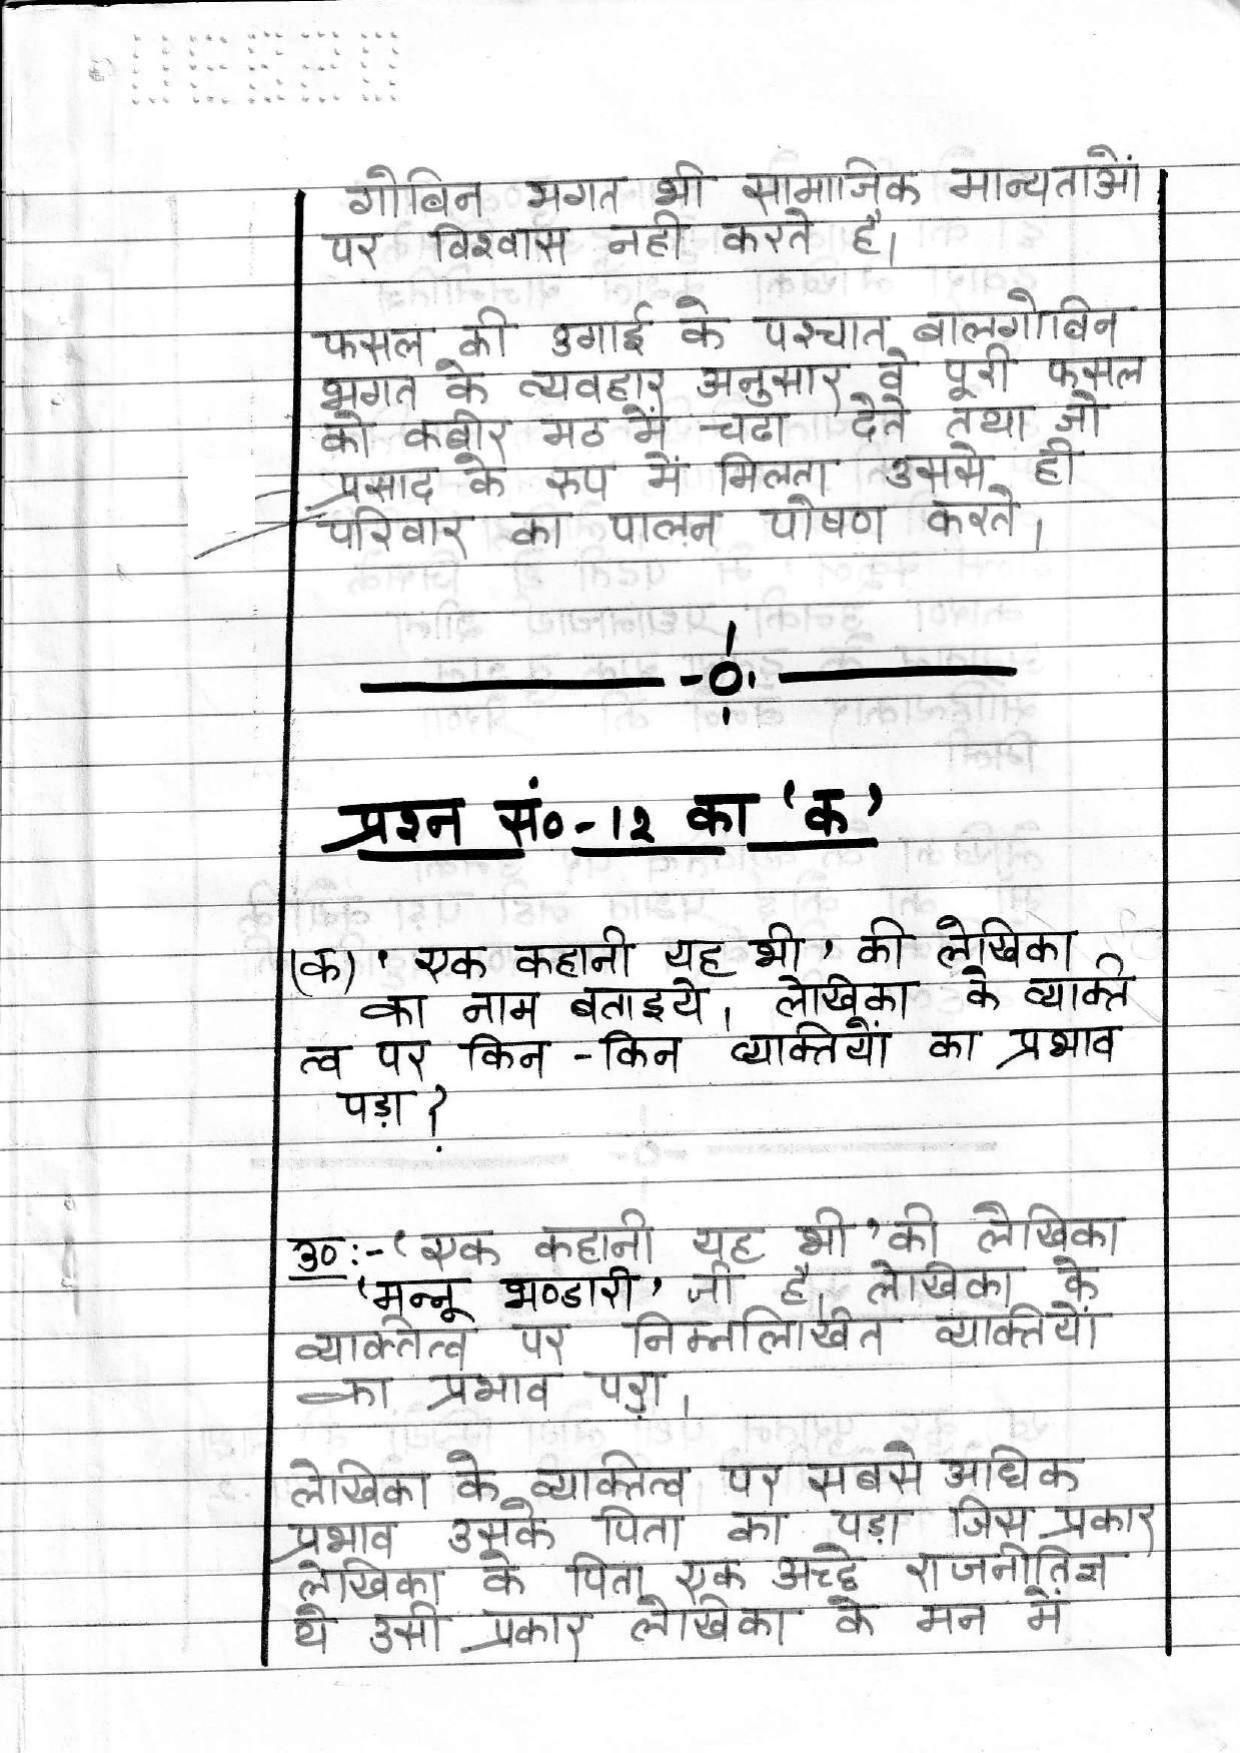 गोबिन भगत भी सामाजिक मान्यताओं
पर विश्वास नही करते है।
फसल की उगाई के पश्चात बालगोबिन
भगत के व्यवहार अनुसार वे पूरी फसल
को कबीर मठ में चढा देते तथा जो
प्रसाद के रुप में मिलता उससे ही
परिवार का पालन पोषण करते।
-0-
प्रश्न सं०-12 का 'क'
(क) 'एक कहानी यह भी' की लेखिका
का नाम बताइये। लेखिका के व्यक्ति
त्व पर किन-किन व्यक्तियों का प्रभाव
पड़ा?
उ०:-'एक कहानी यह भी' की लेखिका
'मन्नू भण्डारी' जी है। लेखिका के
व्यक्तित्व पर निम्नलिखित व्यक्तियों
का प्रभाव पड़ा।
लेखिका के व्यक्तित्व पर सबसे अधिक
प्रभाव उसके पिता का पड़ा जिस प्रकार
लेखिका के पिता एक अच्छे राजनीतिज्ञ
थे उसी प्रकार लेखिका के मन में